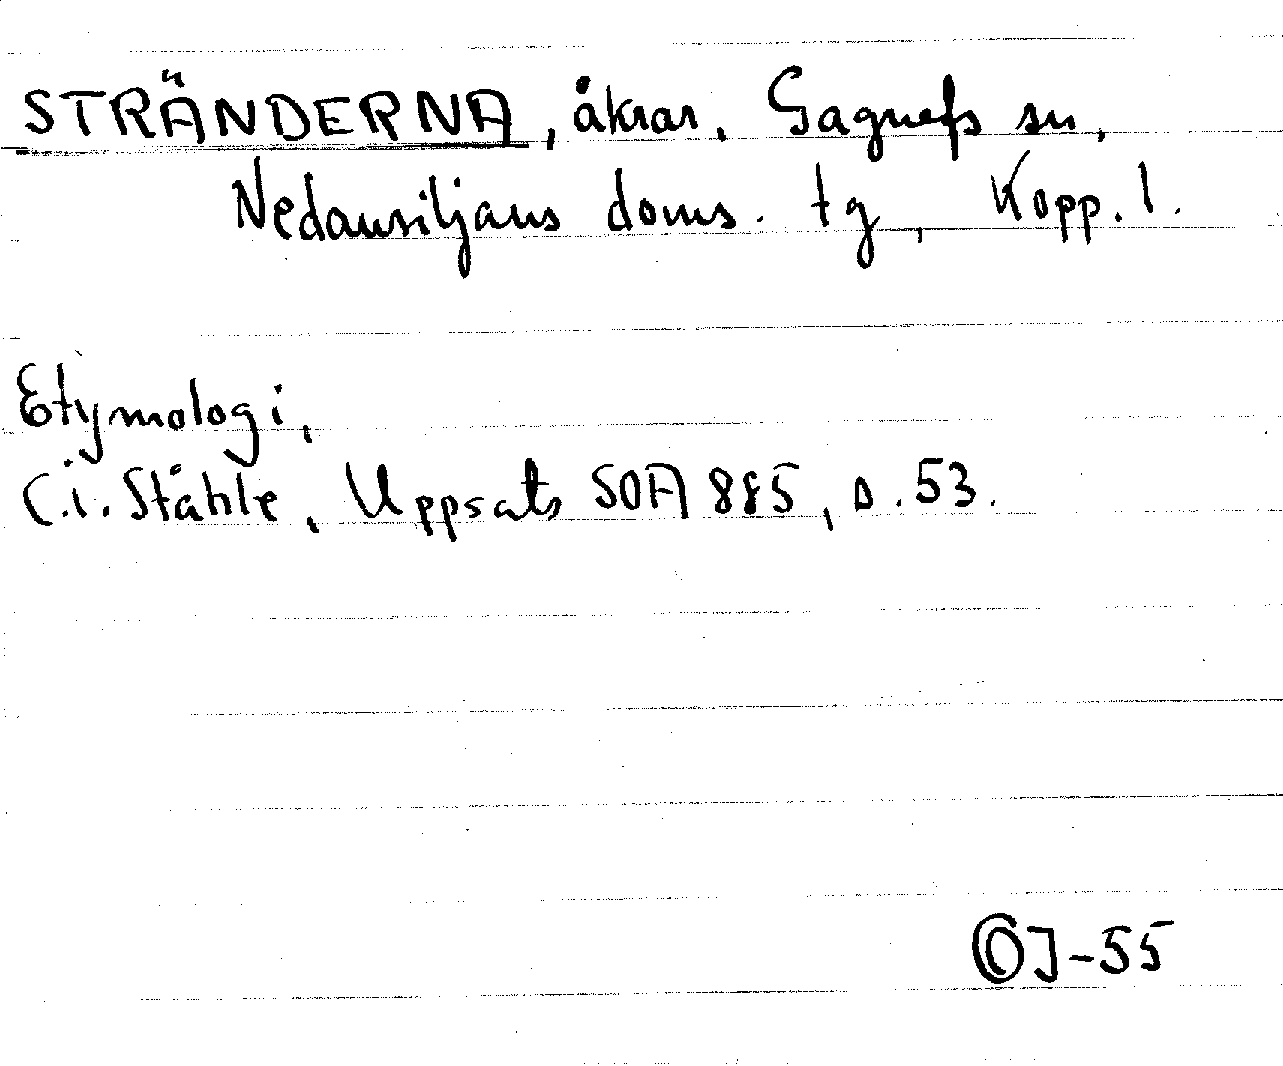 STRÄNDERNA, åkrar, Gagnefs sn,
Nedansiljans doms. tg, Kopp. l.
Etymologi,
C.i. Ståhle, Uppsats SOA 885, s. 53.
OJ-55